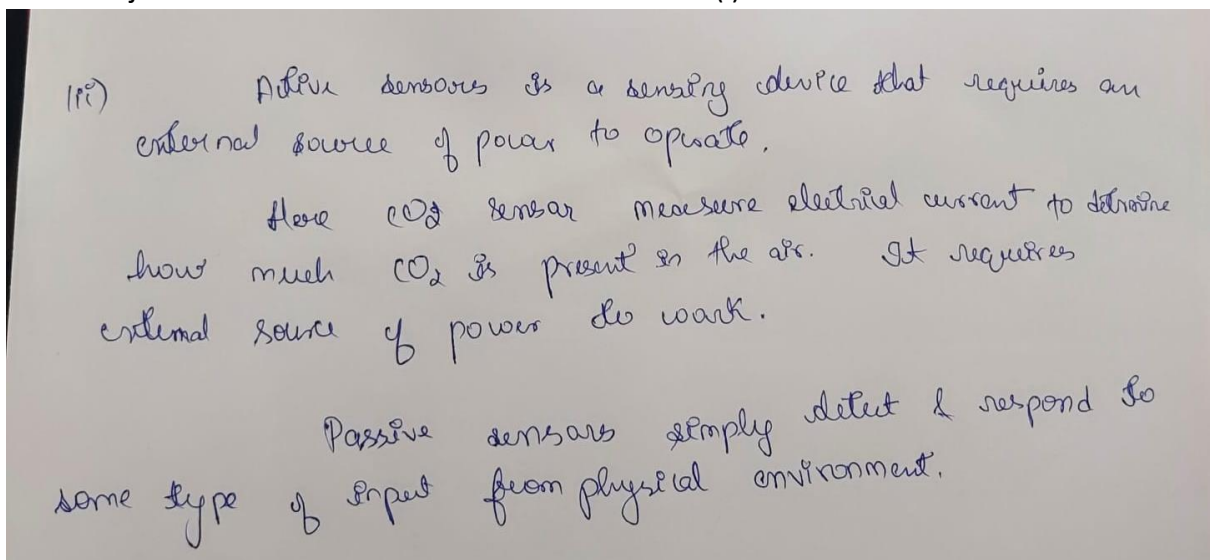 iii) Active sensors is a sensing device that requires an
external source of power to operate.
Here CO2 sensor measure electrical current to determine
how much CO2 is present in the air. It requires
external source of power to work.
Passive sensors simply detect & respond to
some type of input from physical environment.